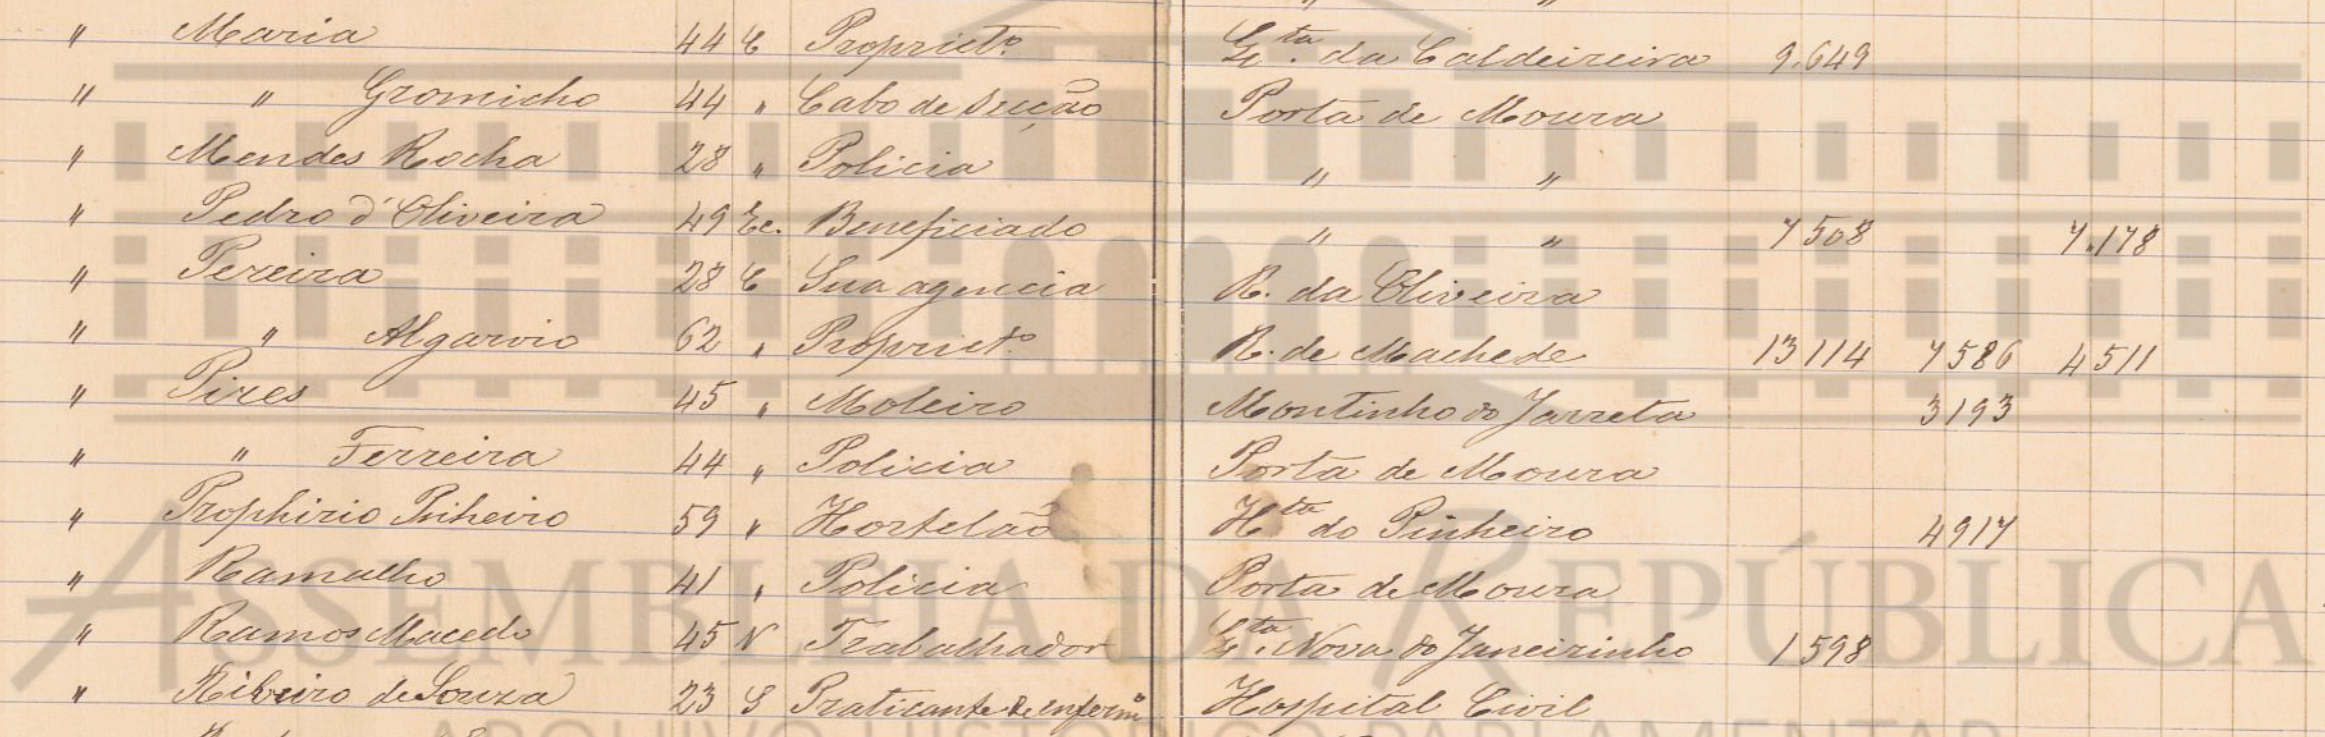 " Maria 44 C Propriet.º Q.ta da Caldeireira 9.649
" " Gromicho 44 " Cabo de Secção Porta de Moura
" Mendes Rocha 28 " Policia " "
" Pedro d'Oliveira 49 Ec. Beneficiado " " 7508 7.178
" Pereira 28 C Sua agencia R. da Oliveira
" " Algarvio 62 " Propriet.º R. de Machede 13114 7586 4511
" Pires 45 " Moleiro Montinho do Jarreta 3193
" " Ferreira 44 " Policia Porta de Moura
" Prophirio Piheiro 59 " Hortelão H.ta do Pinheiro 4917
" Ramalho 41 " Policia Porta de Moura
" Ramos Macedo 45 V Trabalhador Q.ta Nova do Janeirinho 1598
" Ribeiro de Souza 23 S Praticante de enferm.º Hospital Civil
ASSEMBLEIA DA REPÚBLICA
ARQUIVO HISTÓRICO PARLAMENTAR